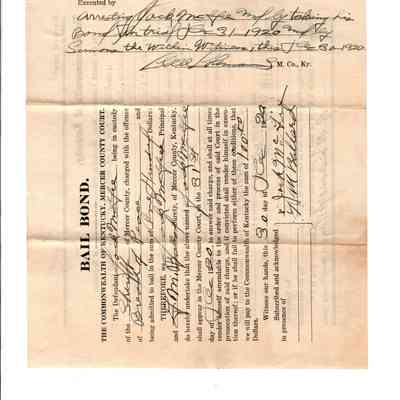 Executed by
Arresting Jack McFee taking his
Bond for trial Dec 31, 1920
this Dec 30 1920.
M. Co., Ky.
BAIL BOND.
THE COMMONWEALTH OF KENTUCKY, MERCER COUNTY COURT.
The Defendant, Jack McFee being in custody
of the of Mercer County, charged with the offense
of Breach of Peace
being admitted to bail in the sum of One Hundred Dollars:
THEREFORE, we Jack McFee Principal
and Surety, of Mercer County, Kentucky,
do hereby undertake that the above named Jack McFee
shall appear in the Mercer County Court, on the 31st
day of Dec 1920, to answer said charge, and shall at all times
render himself amenable to the order and process of said Court in the
prosecution of said charge, and if convicted shall render himself in execu-
tion thereof; or if he shall fail to perform either of these conditions, that
we will pay to the Commonwealth of Kentucky the sum of 100.00
Dollars.
Witness our hands, this 30 day of Dec 1920
Subscribed and acknowledged
in presence of